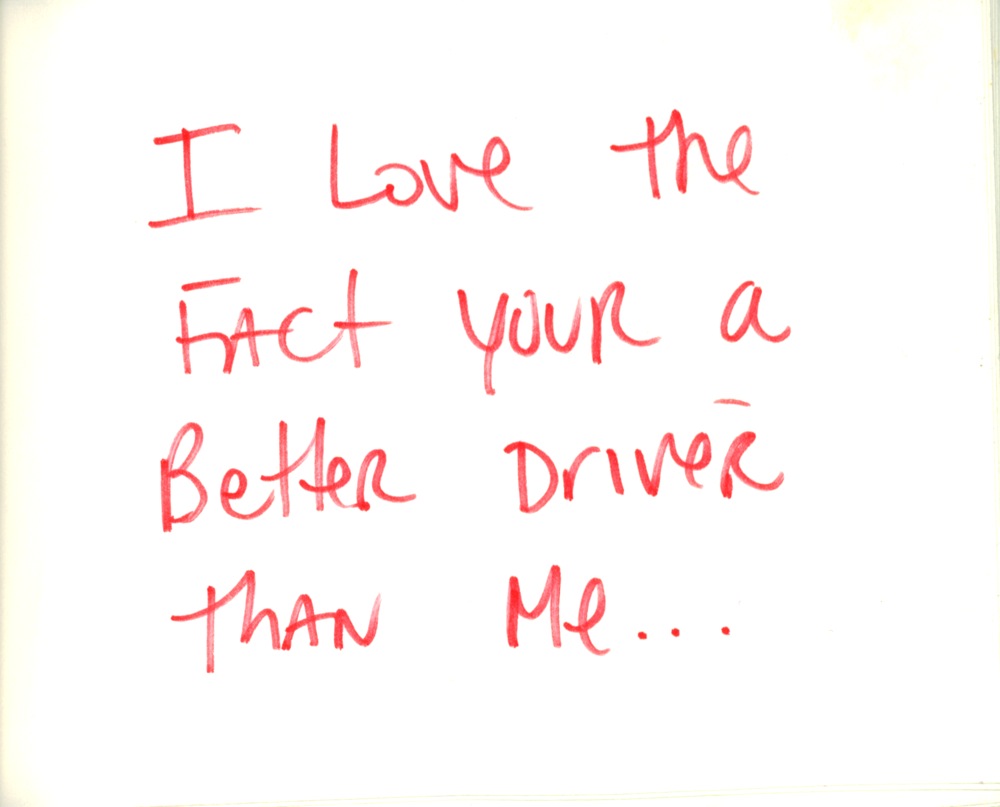 I Love the
FACt YOUR a
Better Driver
thAN Me...